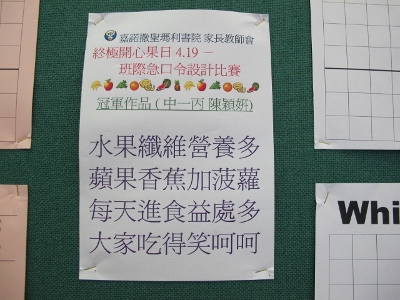 嘉諾撒聖瑪利書院 家長教師會
終極開心果日 4.19 －
班際急口令設計比賽
冠軍作品 ( 中一丙 陳穎妍)
水果纖維營養多
蘋果香蕉加菠蘿
每天進食益處多
大家吃得笑呵呵
Whi